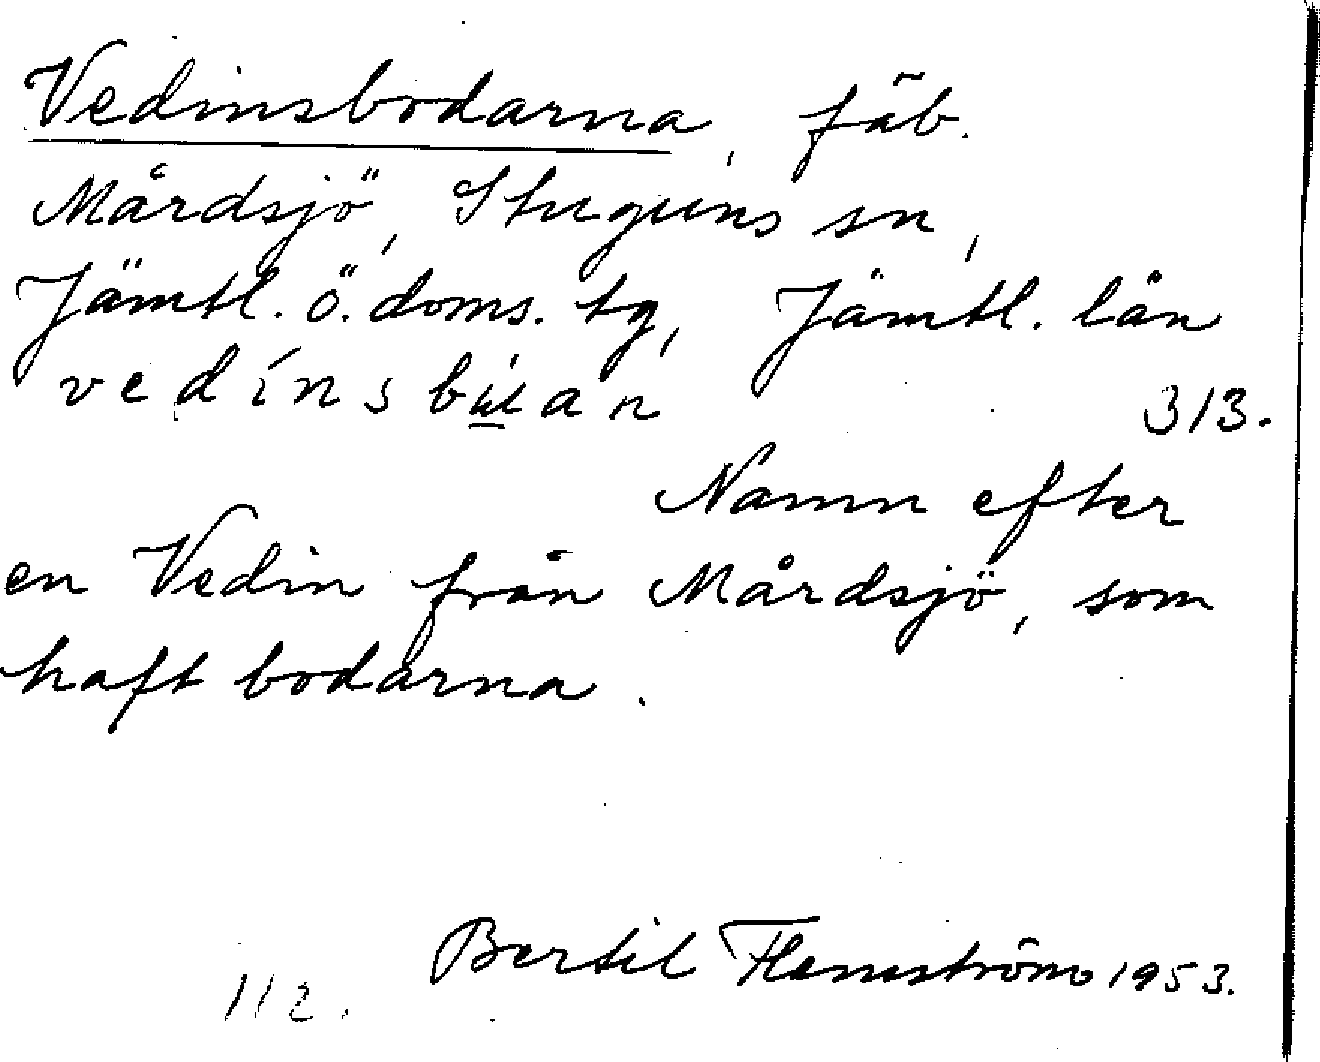 Vedinsbodarna, fäb.
Mårdsjö, Stuguns sn,
Jämtl. ö. doms. tg, Jämtl. län
313.
Namn efter
en Vedin från Mårdsjö, som
haft bodarna.
Bertil Flemström 1953.
112.